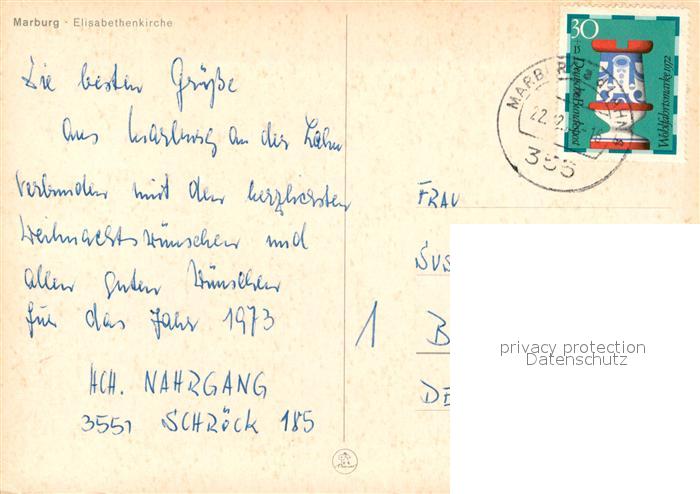 Marburg · Elisabethenkirche
Die besten Grüße
aus Marburg an der Lahn
verbunden mit den herzlichsten
Weihnachtswünschen und
allen guten Wünschen
für das Jahr 1973
HCH. NAHRGANG
3551 SCHRÖCK 185
30
+15
Deutsche Bundespost
Wohlfahrtsmarke 1972
MARBURG
22.12.
355
FRAU
SUS
1 B
DE
privacy protection
Datenschutz